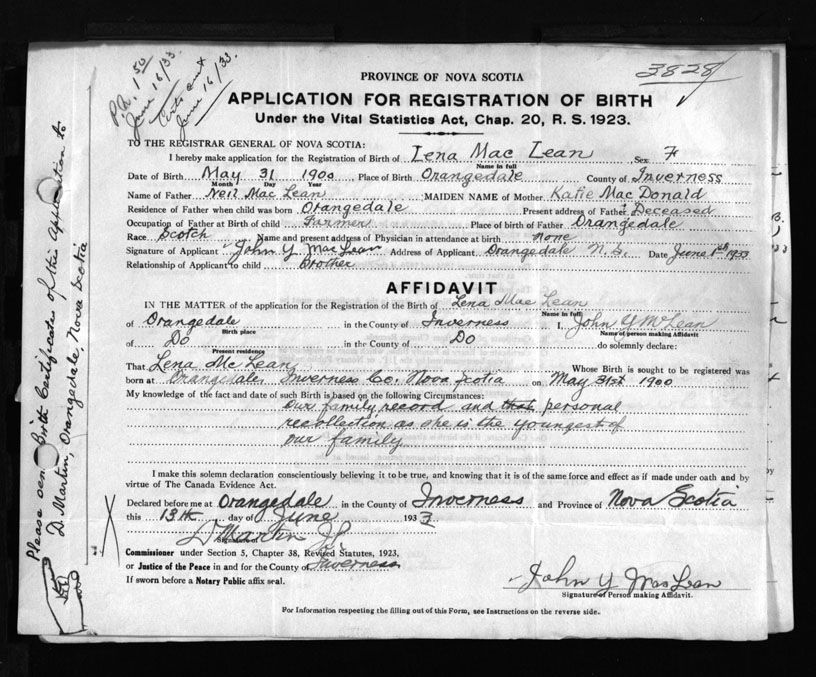 P.N. 1 50
June 16/33.
Certs sent
June 16/33.
3828
PROVINCE OF NOVA SCOTIA
APPLICATION FOR REGISTRATION OF BIRTH
Under the Vital Statistics Act, Chap. 20, R. S. 1923.
TO THE REGISTRAR GENERAL OF NOVA SCOTIA:
I hereby make application for the Registration of Birth of Lena Mac Lean Sex F
Name in full
Date of Birth May 31 1900 Place of Birth Orangedale County of Inverness
Month Day Year
Name of Father Neil Mac Lean MAIDEN NAME of Mother Katie Mac Donald
Residence of Father when child was born Orangedale Present address of Father Deceased
Occupation of Father at Birth of child Farmer Place of birth of Father Orangedale
Race Scotch Name and present address of Physician in attendance at birth None
Signature of Applicant John Y Mac Lean Address of Applicant Orangedale N.S. Date June 1933
Relationship of Applicant to child Brother
AFFIDAVIT
IN THE MATTER of the application for the Registration of the Birth of Lena Mac Lean
Name in full
of Orangedale in the County of Inverness I, John Y McLean
Birth place Name of person making Affidavit
of Do in the County of Do do solemnly declare:
Present residence
That Lena McLean Whose Birth is sought to be registered was
born at Orangedale, Inverness Co. Nova Scotia on May 31st 1900
My knowledge of the fact and date of such Birth is based on the following Circumstances:
Our family record and that personal
recollection as she is the youngest of
our family
I make this solemn declaration conscientiously believing it to be true, and knowing that it is of the same force and effect as if made under oath and by
virtue of The Canada Evidence Act.
Declared before me at Orangedale in the County of Inverness and Province of Nova Scotia
this 13th day of June 1933
D Martin J.P.
Signature of
Commissioner under Section 5, Chapter 38, Revised Statutes, 1923,
or Justice of the Peace in and for the County of Inverness
If sworn before a Notary Public affix seal.
John Y MacLean
Signature of Person making Affidavit.
For Information respecting the filling out of this Form, see Instructions on the reverse side.
Please send Birth Certificates of this Application to
D. Martin, Orangedale Nova Scotia